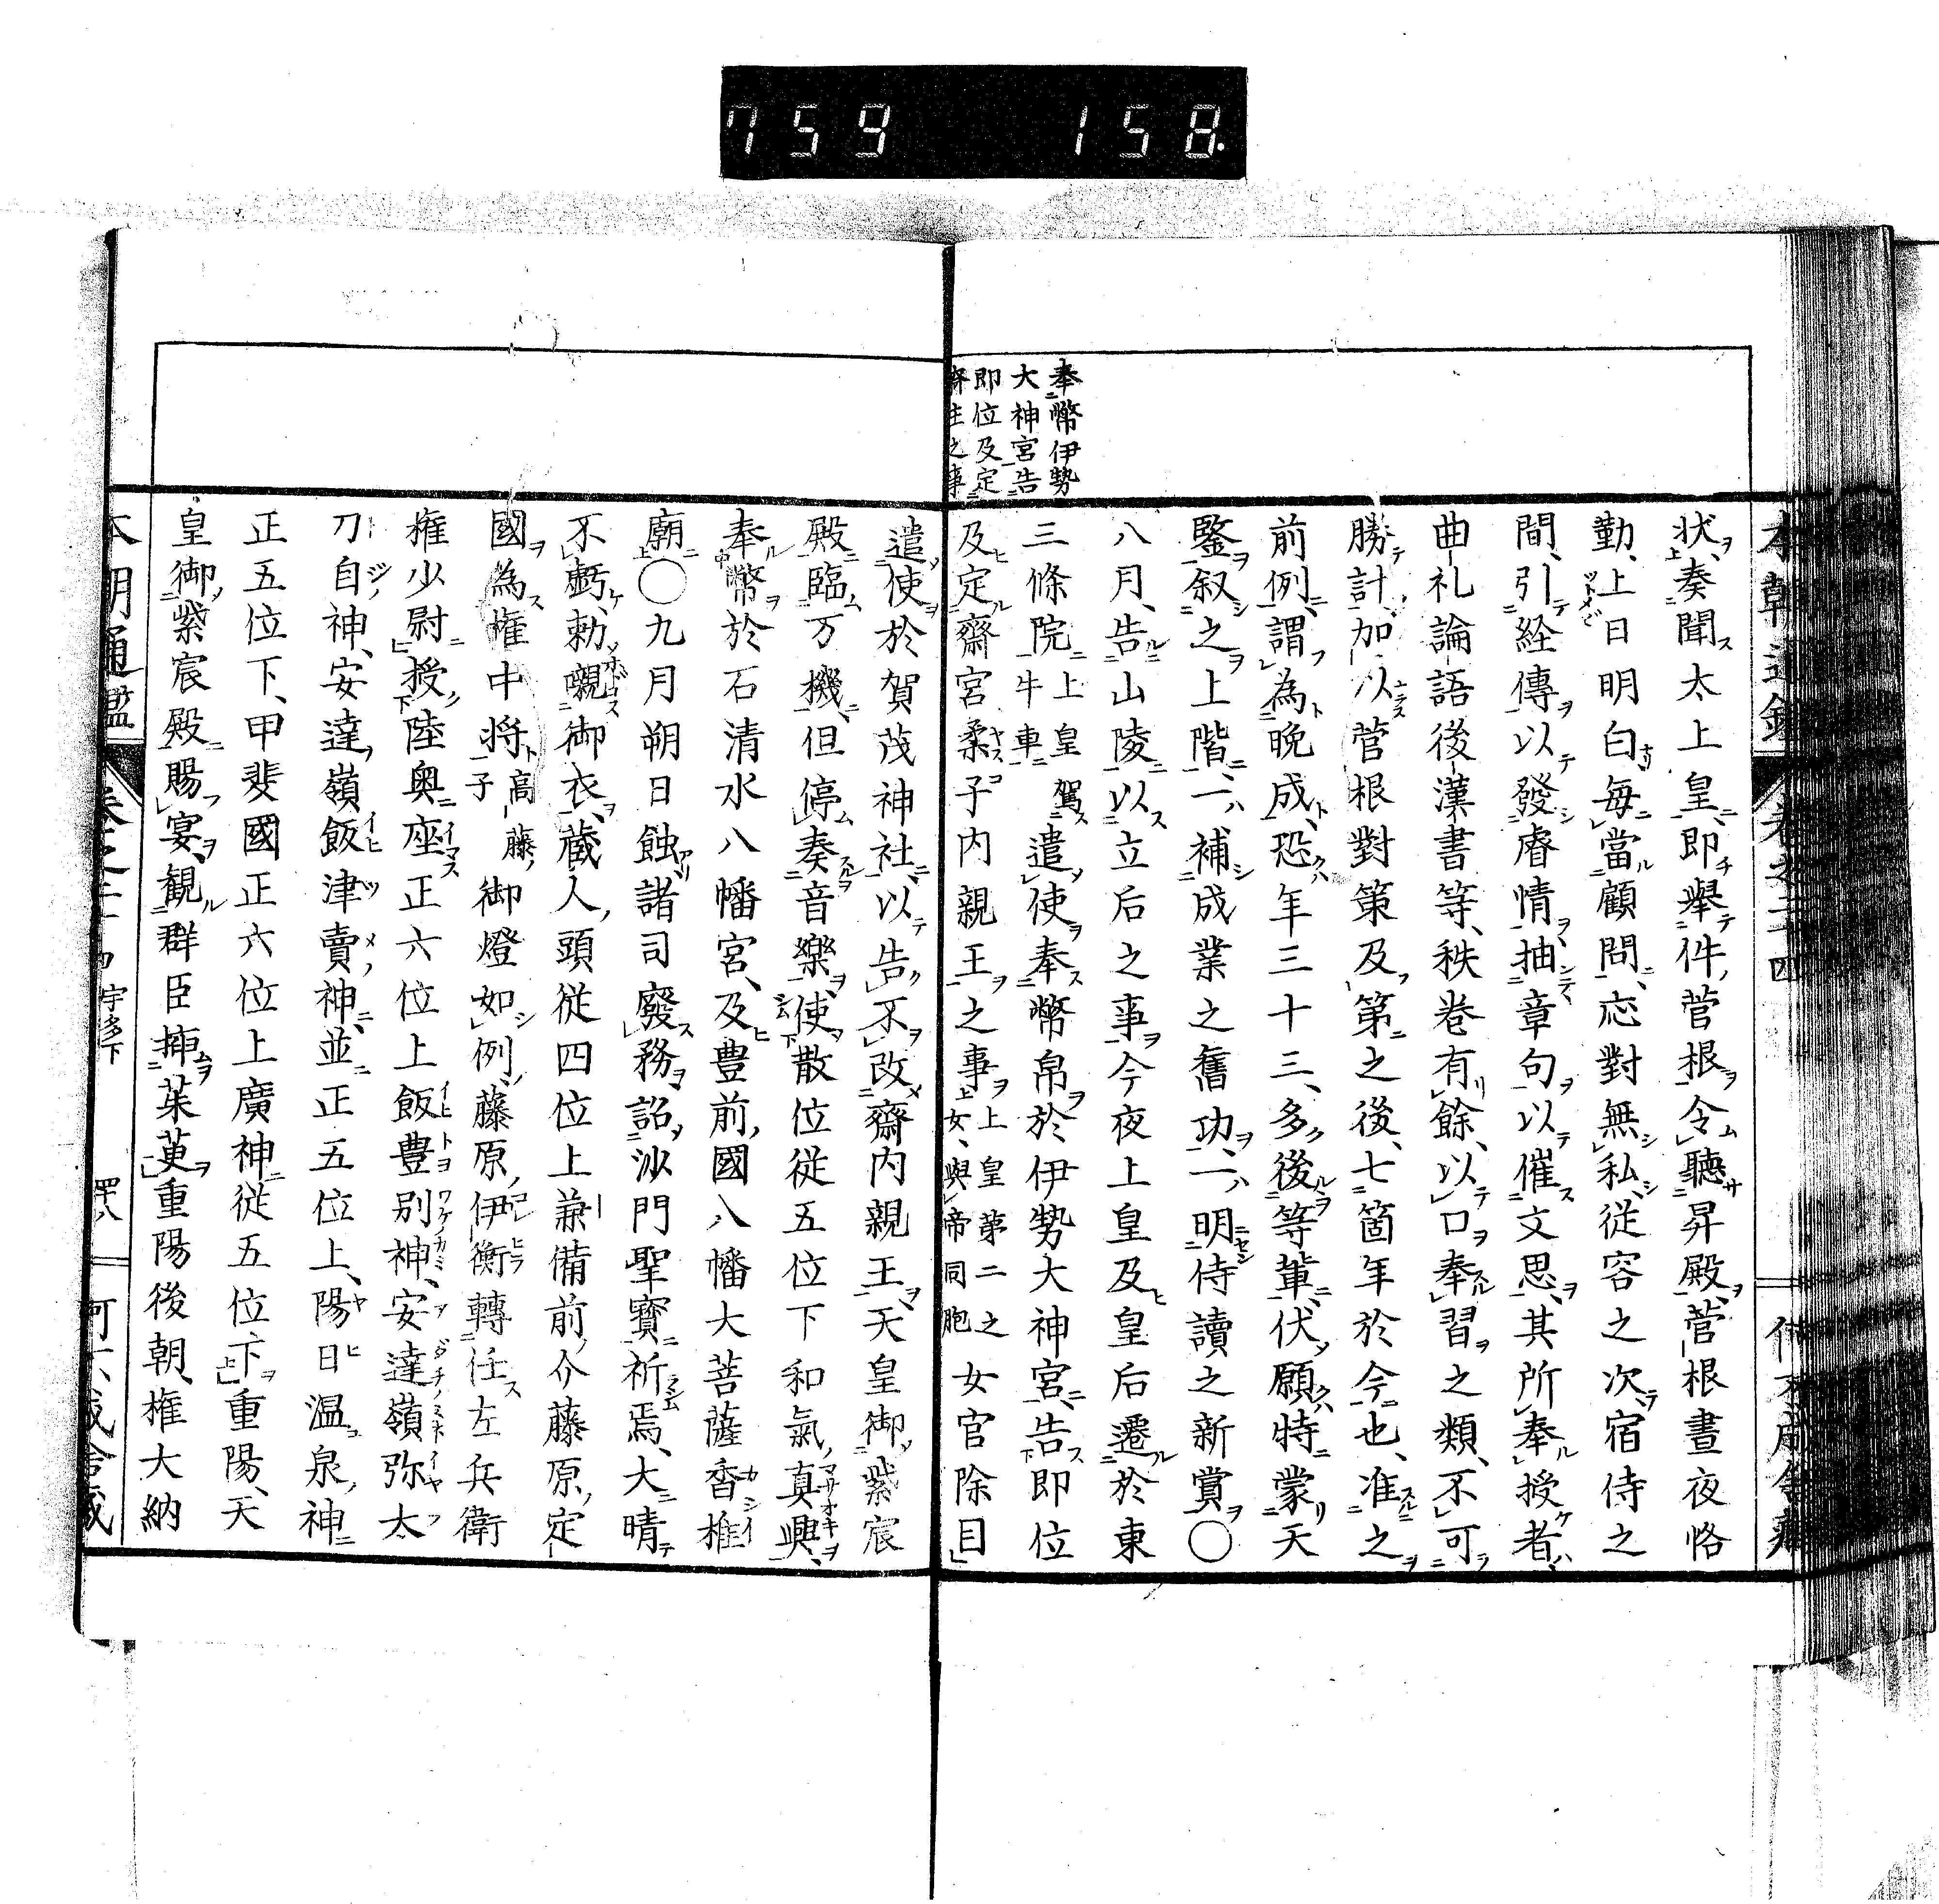 759 158
奉幣伊勢
大神宮告
即位及定
齋王之事
本朝通鑑 卷之二十四
状、奏聞太上皇、即擧件菅根、令聽昇殿、菅根晝夜恪
勤、上日明白、毎當顧問、応對無私、従容之次、宿侍之
間、引経傳以發睿情、抽章句以催文思、其所奉授者、
曲礼論語後漢書等、秩巻有餘、以口奉習之類、不可
勝計、加以菅根對策及第之後、七箇年於今也、准之
前例、謂為晩成、恐年三十三、多後等輩、伏願特蒙天
鑒、叙之上階、一補成業之舊功、一明侍讀之新賞〇
八月、告山陵以立后之事、今夜上皇及皇后遷於東
三條院、上皇駕牛車、遣使奉幣帛於伊勢大神宮、告即位
及定齋宮柔子内親王之事、上皇第二之女、與帝同胞女官除目
遣使於賀茂神社、以告不改齋内親王、天皇御紫宸
殿臨万機、但停奏音樂、使散位従五位下和氣真興、
奉幣於石清水八幡宮、及豊前國八幡大菩薩香椎
廟〇九月朔日蝕諸司廢務、詔沙門聖寳祈焉、大晴
不虧、勅襯御衣、蔵人頭従四位上兼備前介藤原定
國為権中将、高藤子御燈如例、藤原伊衡轉任左兵衛
権少尉、授陸奥座正六位上飯豊別神、安達嶺弥太
刀自神、安達嶺飯津賣神、並正五位上、陽日温泉神
正五位下、甲斐國正六位上廣神従五位下、重陽、天
皇御紫宸殿賜宴、観群臣挿茱萸、重陽後朝、権大納
本朝通鑑 卷之二十四 宇多下